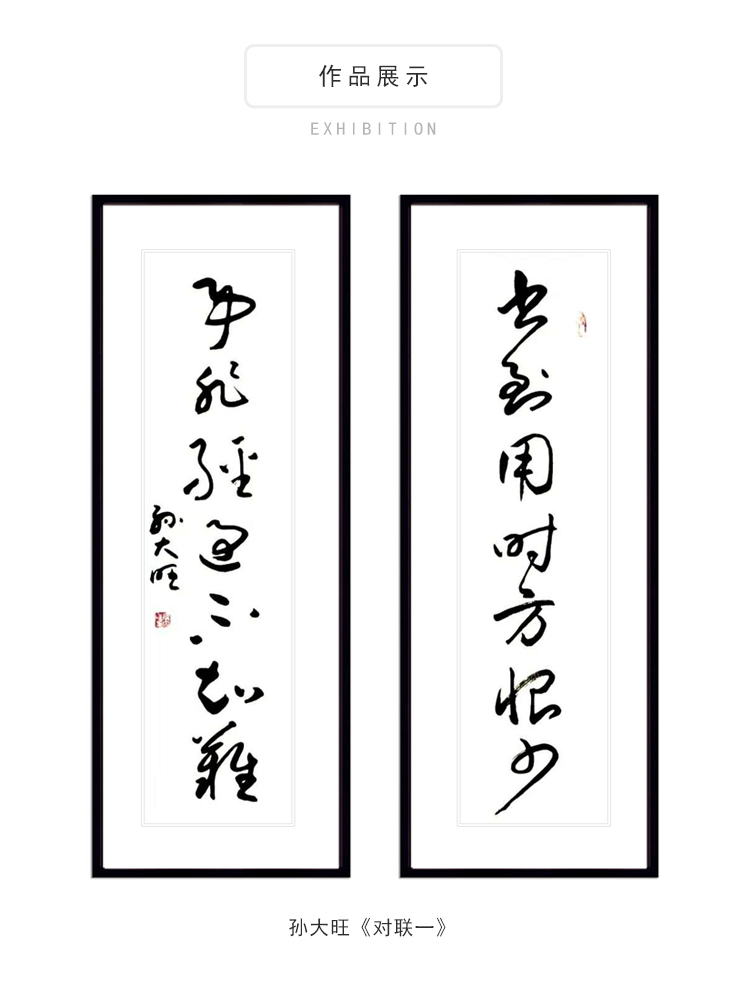 作品展示
EXHIBITION
书到用时方恨少
事非经过不知難
孙大旺
孙大旺《对联一》